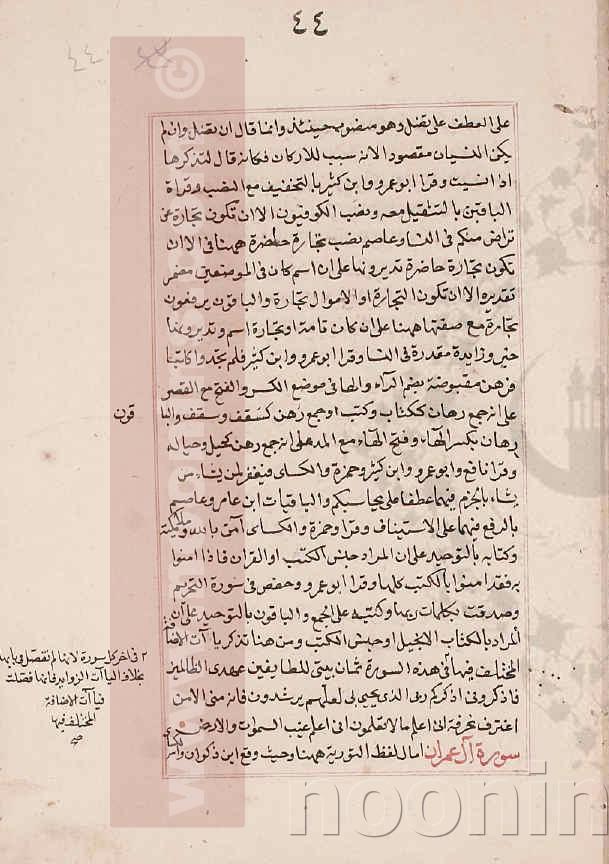 ٤٤
٤٤
على العطف على يضل وهو منصوب حينئذ وانما قال ان يضل وان لم
يكن النسيان مقصودا لانه سبب للاذكار فكانه قال لتذكرها
اذا نسيت وقرا ابو عمرو وابن كثير بالتخفيف مع النصب وقراة
الباقين بالتشقيل معه ونصب الكوفيون الا ان تكون تجارة عن
تراض منكم فى النسا وعاصم نصب تجارة حاضرة ههنا فى الا ان
تكون تجارة حاضرة تديرونها على ان اسم كان فى الموضعين مضمر
تقديره الا ان تكون التجارة او الاموال تجارة والباقون يرفعون
تجارة مع صفتها ههنا على ان كان تامة او تجارة اسم وتديرونها
خبر وزايدة مقدرة فى النسا وقرا ابو عمرو وابن كثير فلم تجدوا كاتبا
فرهن مقبوضة بضم الرآء والها فى موضع الكسر والفتح مع القصر
على انه جمع رهان ككتاب وكتب او جمع رهن كسقف وسقف والبا
قون
رهان بكسر الرآء وفتح الهآء مع المد على انه جمع رهن كحبل وحباله
وقرا نافع وابو عمرو وابن كثير وحمزة والكساى فيغفر لمن يشاء
يشاء بالجزم فيهما عطفا على يحاسبكم والباقيات ابن عامر وعاصم
بالرفع فيهما على الاستيناف وقرا حمزة والكساى آمن بالله وملائكته
وكتابه بالتوحيد على ان المراد جنس الكتب او القران فاذا امنوا
به فقد امنوا بالكتب كلها وقرا ابو عمرو وحفص فى سورة التحريم
وصدقت بكلمات ربها وكتبه على الجمع والباقون بالتوحيد على ان
المراد بالكتاب الانجيل او جنس الكتب ومن هنا تذكر يا آت الاضافة
المختلف فيها فى هذه السورة ثمان بيتى للطايفين عهدى الظالمين
فاذكرونى اذكركم ربى الذى يحيى بى لعلهم يرشدون فانه منى الا من
اغترف غرفة انى اعلم ما لا تعلمون انى اعلم غيب السموات والارض
سورة آل عمران امال لفظ التورية ههنا وحيث وقع ابن ذكوان
٢ فى اخر كل سورة لانها لم تفصل فى بابها
بخلاف اليا آت الزوايد فانها فصلت
يا آت الاضافة
المختلف فيها
صح
noonin